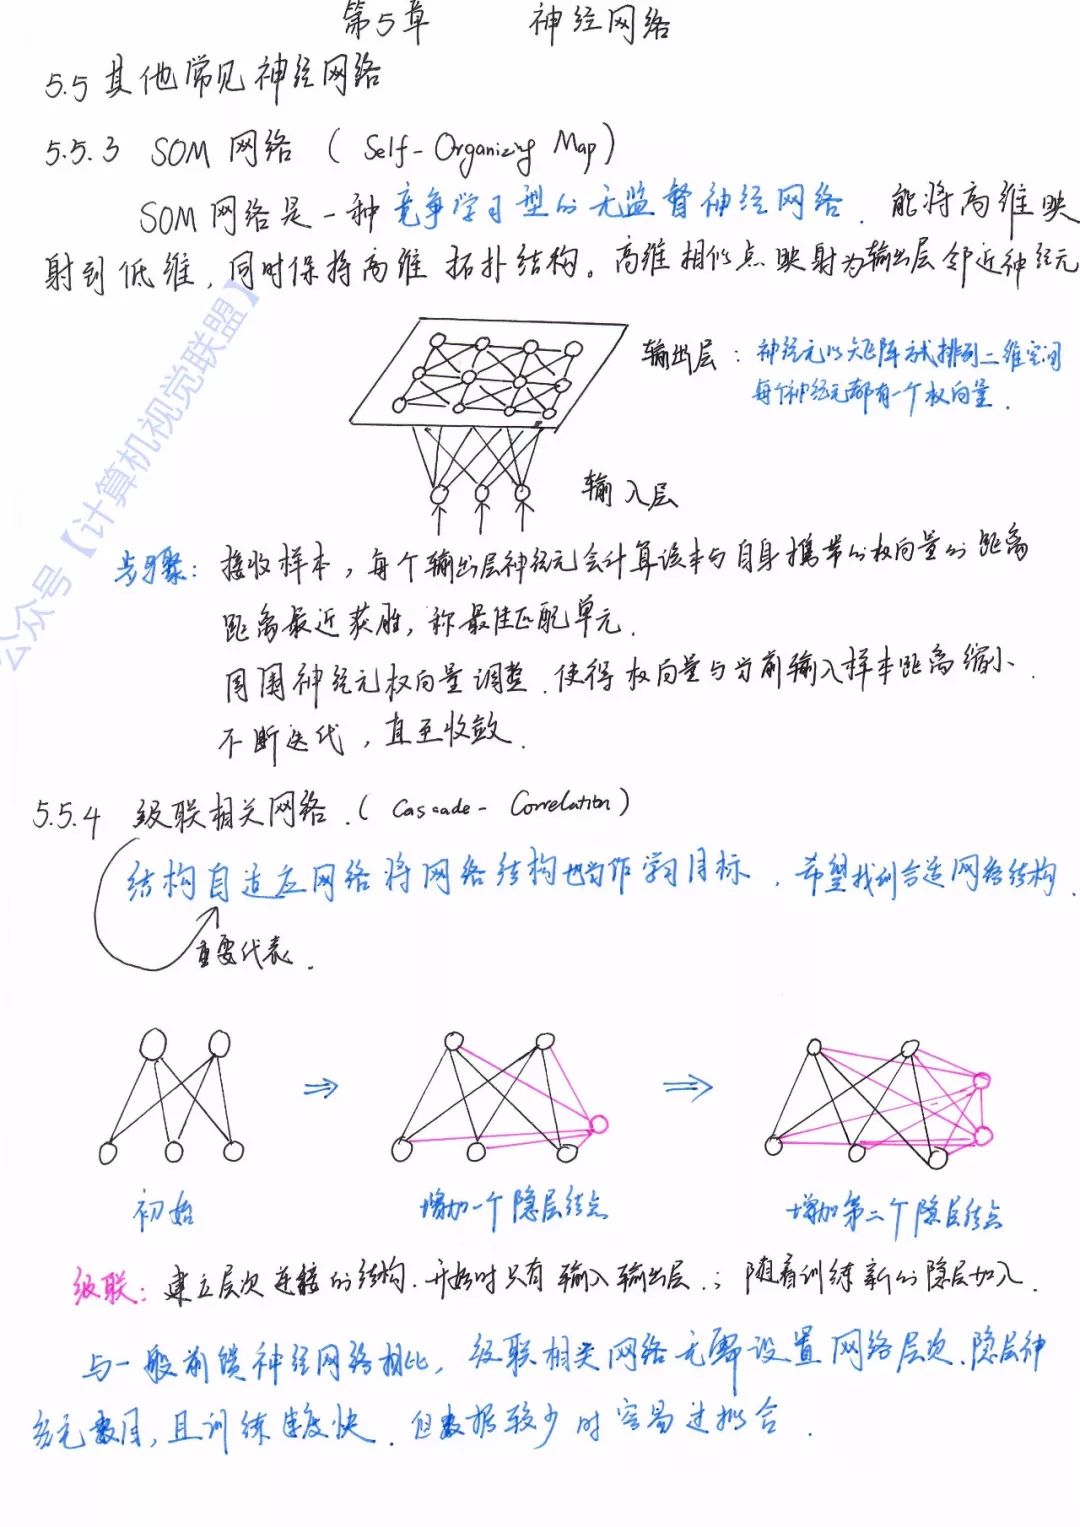 第5章 神经网络
5.5 其他常见神经网络
5.5.3 SOM 网络 ( Self-Organizing Map )
SOM 网络是一种竞争学习型的无监督神经网络. 能将高维映
射到低维, 同时保持高维拓扑结构。高维相似点映射为输出层邻近神经元
输出层: 神经元以矩阵方式排列二维空间
每个神经元都有一个权向量.
输入层
公众号【计算机视觉联盟】
步骤: 接收样本, 每个输出层神经元会计算该本与自身携带的权向量的距离
距离最近获胜, 称最佳匹配单元.
周围神经元权向量调整. 使得权向量与当前输入样本距离缩小.
不断迭代, 直至收敛.
5.5.4 级联相关网络. ( Cascade-Correlation )
结构自适应网络将网络结构也当作学习目标. 希望找到合适网络结构.
重要代表.
初始
增加一个隐层结点
增加第二个隐层结点
级联: 建立层次连接的结构. 开始时只有输入输出层.; 随着训练新的隐层加入.
与一般前馈神经网络相比, 级联相关网络无需设置网络层次、隐层神
经元数目, 且训练速度快. 但数据较少时容易过拟合.